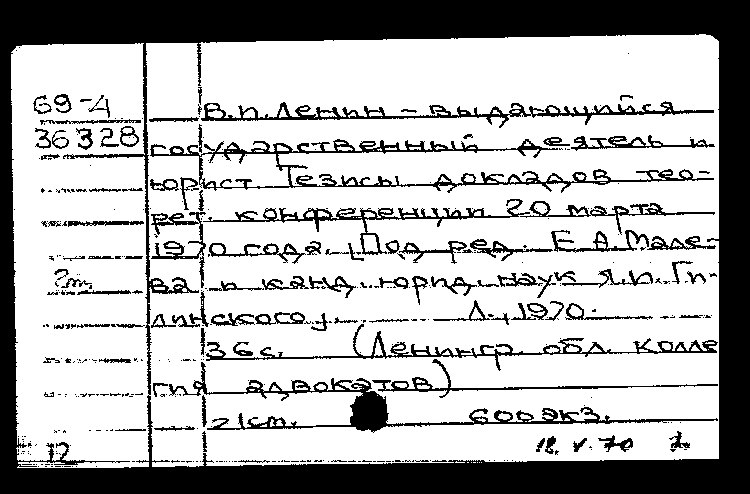 69-4
36328
В.И.Ленин – выдающийся
государственный деятель и
юрист. Тезисы докладов тео-
рет. конференции 20 марта
1970 года. [Под ред. Е.А.Мале-
ва и канд. юрид. наук Я.И.Ги-
линского]. Л., 1970.
36с. (Ленингр. обл. колле
гия адвокатов)
21см. 600экз.
12 18.V.70